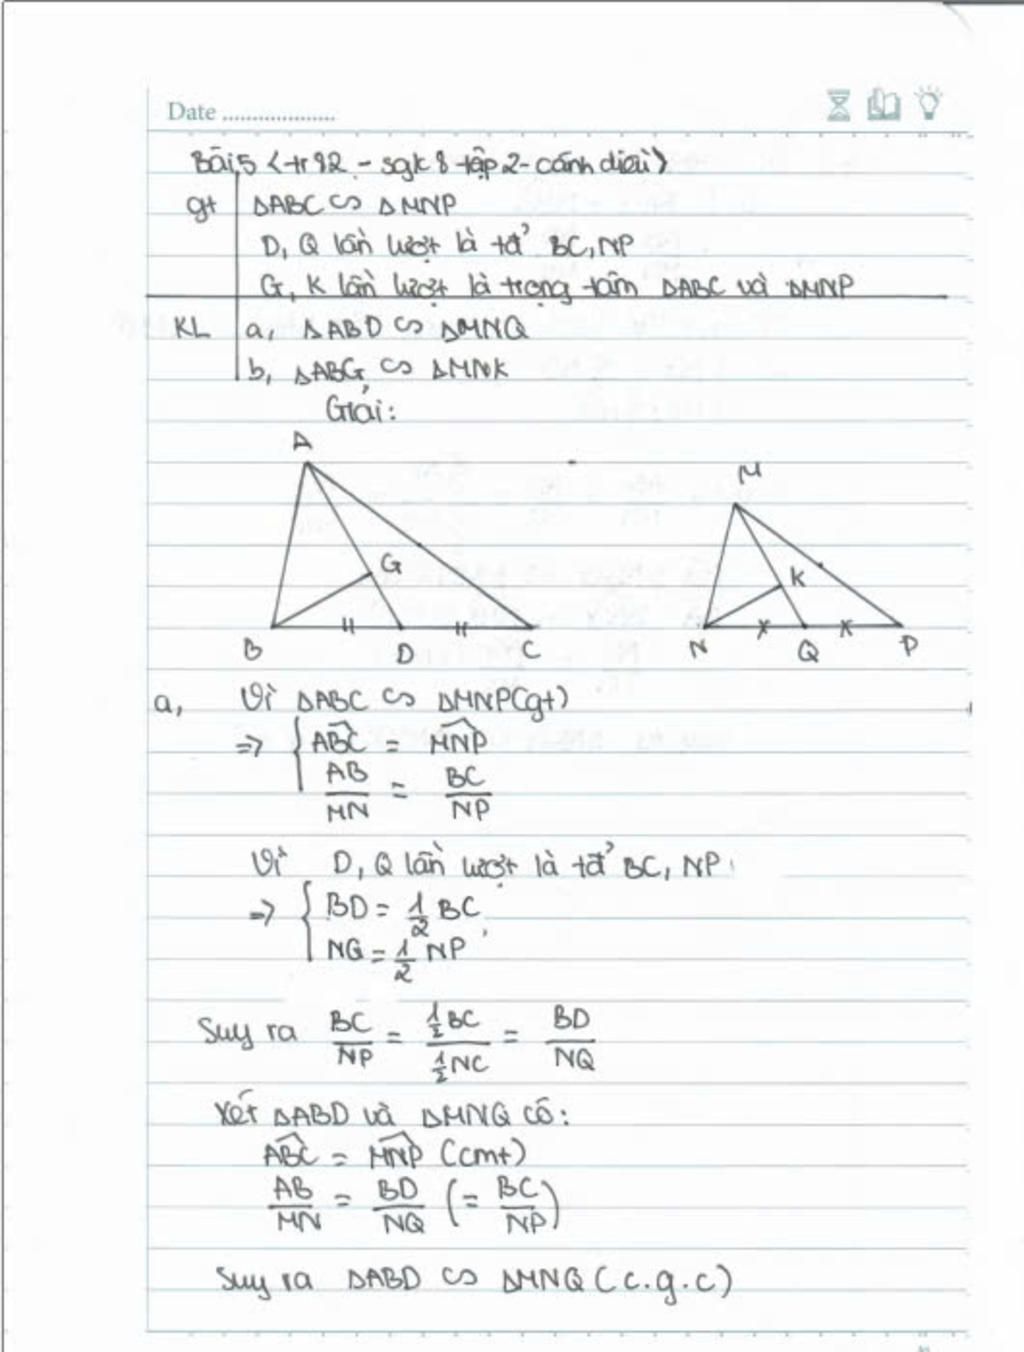 Date ...................
Bài 5 < tr 82 - sgk 8 tập 2 - cánh diều >
gt ΔABC ∽ ΔMNP
D, Q lần lượt là tđ' BC, NP
G, K lần lượt là trọng tâm ΔABC và ΔMNP
KL a, ΔABD ∽ ΔMNQ
b, ΔABG ∽ ΔMNK
Giải:
A
M
G
K
B D C
N Q P
a, Vì ΔABC ∽ ΔMNP (gt)
=> { \widehat{ABC} = \widehat{MNP}
AB/MN = BC/NP
Vì D, Q lần lượt là tđ' BC, NP
=> { BD = 1/2 BC
NQ = 1/2 NP
Suy ra BC/NP = 1/2 BC / 1/2 NC = BD/NQ
Xét ΔABD và ΔMNQ có:
\widehat{ABC} = \widehat{MNP} (cmt)
AB/MN = BD/NQ (= BC/NP)
Suy ra ΔABD ∽ ΔMNQ (c.g.c)